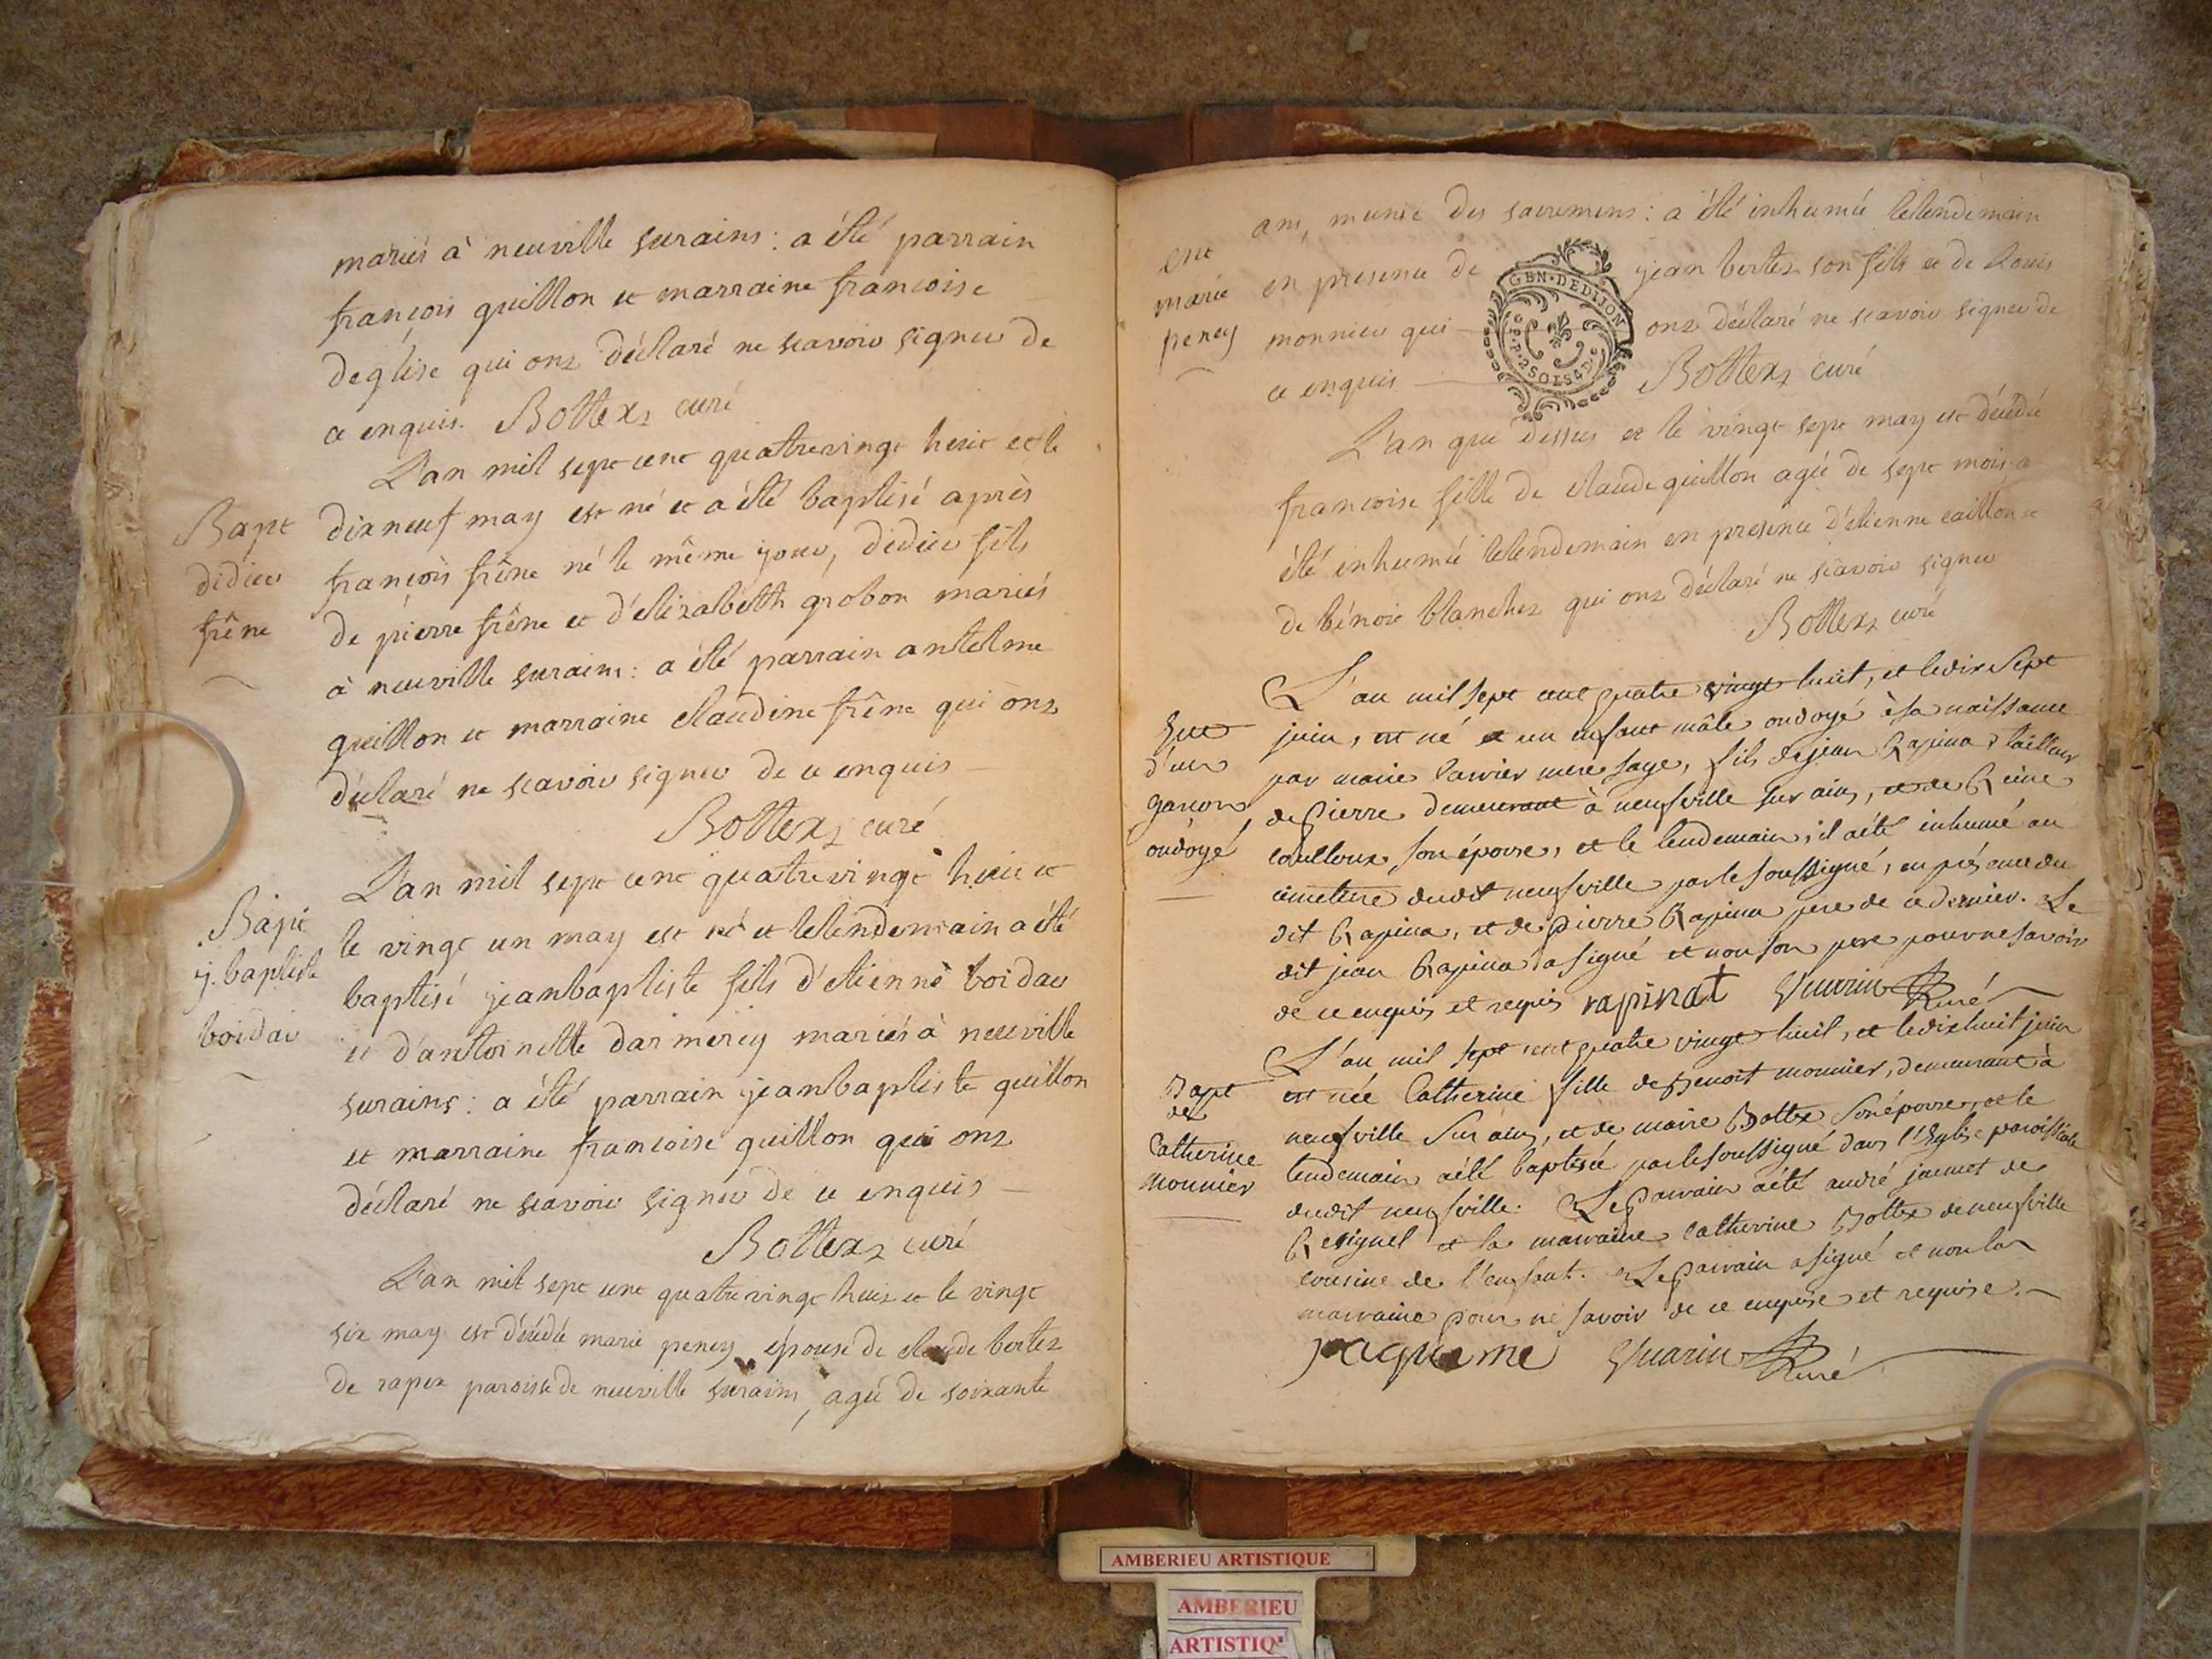 mariés à neuville surains : a été parrain
françois guillon et marraine francoise
deglise qui ont déclaré ne scavoir signer de
ce enquis. Bottex curé
L'an mil sept cent quatrevingt huit et le
Bapt
didier
frêne
dixneuf may est né et a été baptisé après
françois frêne né le même jour, didier fils
de pierre frêne et d'elizabeth grobon mariés
à neuville surains : a été parrain antelme
guillon et marraine claudine frêne qui ont
déclaré ne scavoir signer de ce enquis
Bottex curé
L'an mil sept cent quatrevingt huit et
Bapt
j. baptiste
boidar
le vingt un may est né et lelendemain a été
baptisé jeanbaptiste fils d'etienne boidar
et d'antoinette darmency mariés à neuville
surains : a été parrain jeanbaptiste guillon
et marraine francoise guillon qui ont
déclaré ne scavoir signer de ce enquis
Bottex curé
L'an mil sept cent quatrevingt huit et le vingt
six may est décédé marie pency épouse de claude bertet
de rapan paroisse de neuville surains, agée de soixante
ans, munie des sacremens : a été inhumée lelendemain
ent
marie
pency
en presence de jean bertet son fils et de Louis
monnier qui ont déclaré ne scavoir signer de
ce enquis Bottex curé
GEN·DEDIJON
2SOLS4D
L'an que dessus et le vingt sept may est décédée
francoise fille de claude guillon agée de sept mois a
été inhumée lelendemain en presence d'etienne caillon et
de bénoit blanchet qui ont déclaré ne scavoir signer
Bottex curé
L'an mil sept cent quatre vingt huit, et le dix sept
d'un
garçon
ondoyé
juin, est né et un enfant mâle ondoyé à sa naissance
par marie mere sage, fils de jean Rapina tailleur
de Pierre demeurant à neufville sur ain, et de Reine
son épouse, et le lendemain, il a été inhumé au
cimetierre dudit neufville par le soussigné, en présence du
dit Rapina, et de Pierre Rapina pere de ce dernier. Le
dit jean Rapina a signé et non son pere pour ne savoir
de ce enquis et requis rapinat Guarin Curé
L'an mil sept cent quatre vingt huit, et le dix huit juin
Bapt
de
Catherine
Monnier
est née Catherine fille de Benoit monnier, demeurant à
neufville sur ain, et de marie Bottex son épouse, et le
lendemain a été baptisée par le soussigné dans l'Eglise paroissiale
dudit neufville. Le Parrain a été andré jacmet de
Resignel et la marraine Catherine Bottex de neufville
cousine de l'enfant. Le Parrain a signé et non la
marraine pour ne savoir de ce enquise et requise.
jaqueme Guarin Curé
AMBERIEU ARTISTIQUE
AMBERIEU
ARTISTIQ